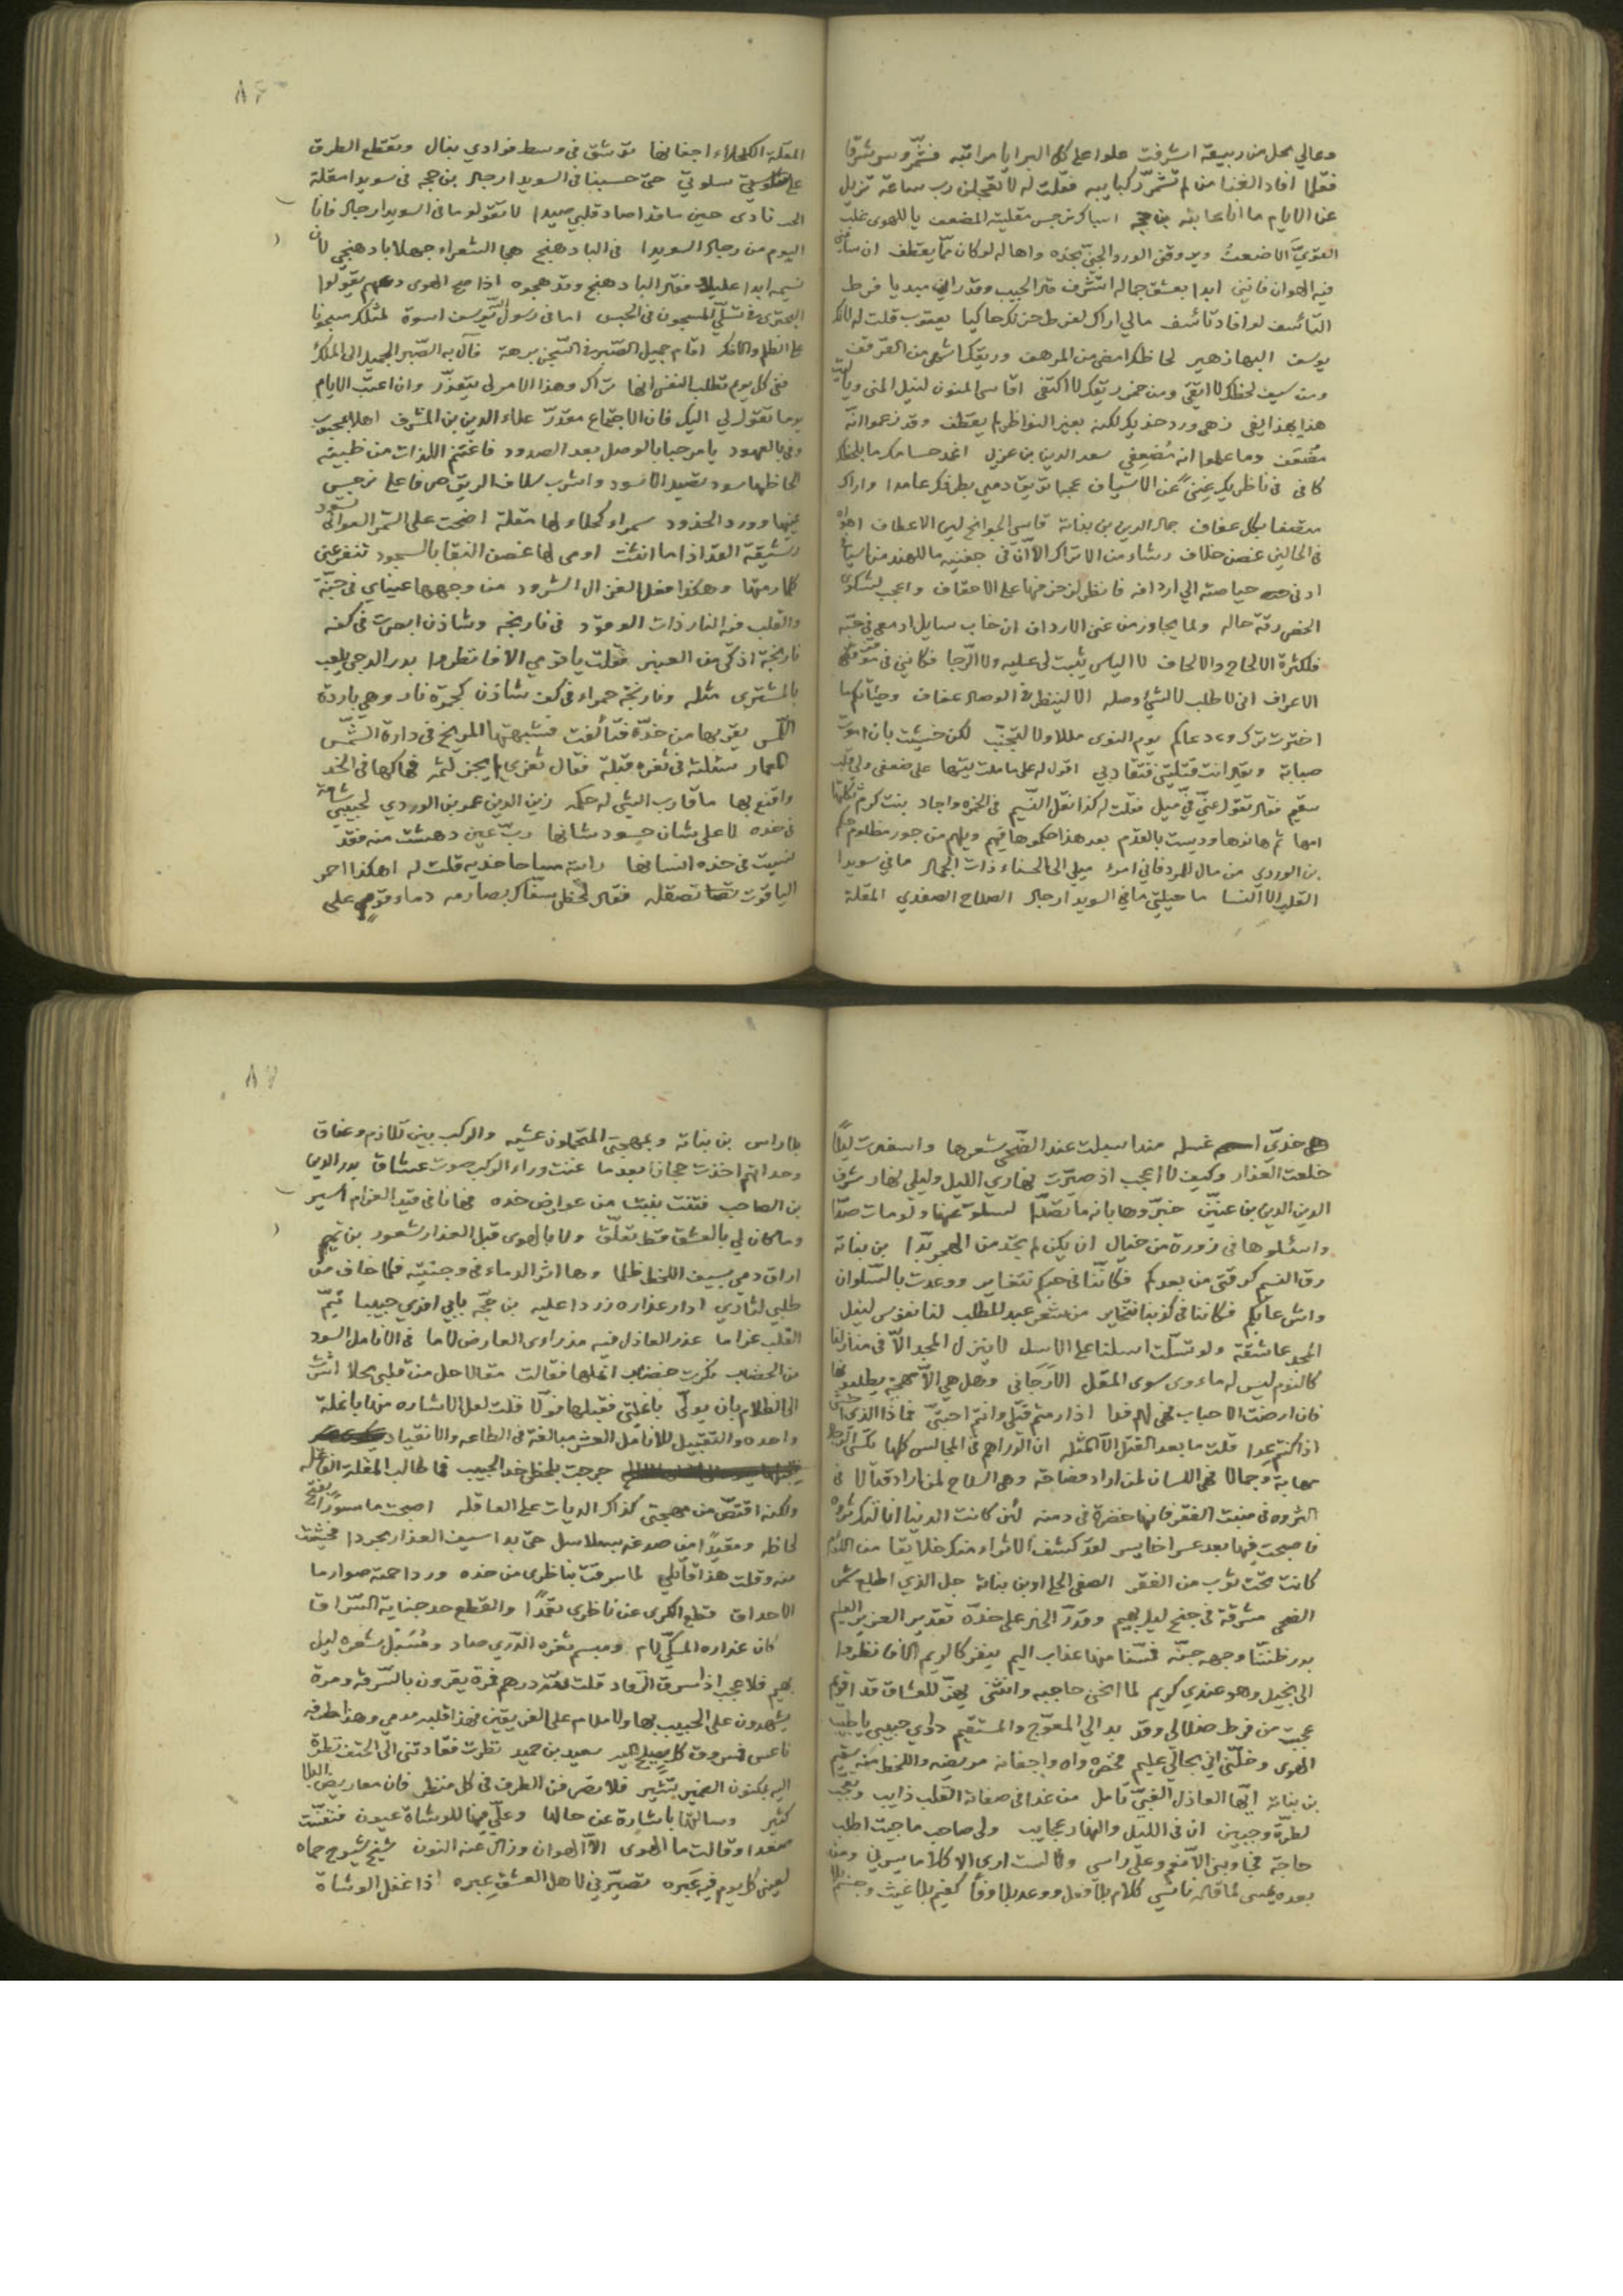 وعالي محل من ربيعة اشرفت علوا على كل البرايا مراتبه فشمّر وسر شرقا
فقلما افاد الغنا من لم تشمر ركايبه فقلت له لا تعجلن رب ساعة تزيل
عنا الايام ما انا عاتبه بن حجه اسباك نرجس مقلتيه المضعف يا للهوى غلب
القويّ الاضعف ويروقني الورد الجنيّ بخده واها له لو كان ممّا يقطف ان ساءني
فيه الهوان فانني ابدا بعشق جماله اتشرف قال الحبيب وقد راني مبديا فرط
التأسف لو افاد تأسف مالي اراك لفرط حزنك حاكيا يعقوب قلت له لانك
يوسف البها زهير لحاظك امضى من المرهف وريقك اشهى من القرقف
ومن سيف لحظك لا اتقي ومن خمر ريقك لا اكتفي اقاسي المنون لنيل المنى ويا ليت
هذا بهذا يفي زهى ورد خديك لكنه بغير النواظر لم يقطف وقد زعموا انه
مضعف وما علموا انه مُضعِفي سعد الدين بن عربي اغمد حسامك ما بلحظك
كافي في ناظريك غنىً عن الاسياف عجبا تريق دمي بطرفك عامدا واراك
متصفا بكل عفاف جمال الدين بن نباتة قاسي الجوانح لين الاعطاف اهواه
في الحالين غصن خلاف رشاء من الاتراك الا ان في جفنيه ما للهند من اسياف
الخصر رقة حاله ولما يجاوز من غنى الارداف ان خاب سايل ادمعي في حبّه
فلكثرة الالحاح والالحاف لا الياس يثبت لي عليه ولا الرجا فكانني في موقف
الاعراف اني لاطلب لا لشيء وصله الا لينظر في الوصال عفاف
اخترت ترك وداعكم يوم النوى مللا ولا لتجنّب لكن خشيت بان اموت
صبابة ويقال انت قتلتني فتقاد بي اقول له علي ما ملت تيها على ضعفي ولي قلب
سقيم فقال تقول عنيّ فيّ ميل فقلت له كذا نقل النسيم في الخمره واجاد بنت كرم
امها ثم هانوها وديست بالقدم بعد هذا حكموها فيهم ويلهم من جور مظلوم حكم
بن الوردي من مال للمرد فاني امرؤ ميلي الى الحسناء ذات الجمال ما في سويدا
القلب الا النسا ما حيلتي ما في السويدا رجال الصلاح الصفدي المقلة
المقلة الكحلاء اجفانها ترشق في وسط فوادي نبال وتقطع الطرق
على سلوتي حتى حسبنا في السويدا رجال بن حجه في سويدا مقلة
الحب نادى حين ساقدا صاد قلبي صيدا لا تقولوا ما في السويدا رجال فانا
اليوم من رجال السويدا في البادهنج هجا الشعراء جهلا بادهنجي لان
نسيمه ابدا عليل فقال البادهنج وقد هجوه اذا صح الهوى دعهم يقولوا
البحتري في تسلّي المسجون في الحبس اما في رسول الله يوسف اسوة لمثلك مسجونا
على الظلم والافك اقام جميل الصبر في السجن برهة فآل به الصبر الجميل الى الملك
ففي كل يوم تطلب النفس انها تراك وهذا الامر لي يتعذر وان اعتب الايام
يوما تقول لي اليك فان الاجتماع مقدرّ علاء الدين بن المشرف اهلا بمحبوب
وفي بالعهود يا مرحبا بالوصل بعد الصدود فاغتنم اللذات من ظبية
الحاظها سود تصيد الاسود واشرب سلاف الريق صرفا على نرجس
عينيها وورد الخدود سمراء كحلاء لها مقلة اضحت على السمر العوالي تسود
رشيقة القد اذا ما انثنت اومى لها غصن النقا بالسجود تنفر عني
كلما رمتها وهكذا فعل الغزال الشرود من وجهها عيناي في جنّة
والقلب فيه النار ذات الوقود في نارنجه وشاذن ابصرت في كفه
نارنجة اذكى من العنبر فقلت يا قومي الا فانظروا بدر الدجى يلعب
بالمشتري مثله ونارنجة حمراء في كف شاذن كجمرة نار وهي باردة
اللمس يقربها من خدّه فتألفت فشبهتها المريخ في دارة الشمس
المعمار سئلته في ثغره قبلة فقال ثغري لم يجز لثمه فهاكها في الخد
واقنع بها ما قارب الشي له حكمه زين الدين عمر بن الوردي لحبيبي شامة
في خده لا على شان حسود شانها ربّ عين دهشت منه فقد
نسيت في خده انسانها رايته مساحا خديه قلت له اهكذا احمر
الياقوت تصقله فقال لحظي سفّاك بصارمه دماء قوم على
خلعت العذار وكيف لا اعجب اذ صيرّت نهاري الليل وليلي نهار شرف
الدين بن عنين خبّروها بانه ما تصدّا لسلو عنها ولو مات صدّا
واسئلوها في زورة من خيال ان يكن لم تجد من الهجر بدّا بن نباته
رق النسيم كرقتي من بعدكم فكاننا في حبكم نتغاير ووعدت بالسلوان
واش عابكم فكاننا في كذبنا نتخاير من شعر عبد المطلب لنا نفوس لنيل
المجد عاشقة ولو تسلّت اسلناها على الاسل لا ينزل المجد الّا في منازلنا
كالنوم ليس له ماوى سوى المقل الارّجاني وهل هي الّا مهجة يطلبونها
فان ارضت الاحباب فهي لهم فدا اذا رمتم قتلي وانتم احبتيّ فماذا الذي اخشى
اذا كنتم عدا قلت ما بعد القتل الا المثله ان الدراهم في المجالس كلها تكسي الرجال
مهابة وجمالا فهي اللسان لمن اراد فصاحة وهي السلاح لمن اراد قتالا في
الثروه في منبت الفقر فانها خضرة في دمنه لئن كانت الدنيا انالتك ثروة
فاصبحت فيها بعد عسر اخا يسر لقد كشف الاثراء منك خلايقا من اللؤم
كانت تحت ثوب من الفقر الصفي الحلي او بن نباتة جل الذي اطلع شمس
الضحى مشرقة في جنح ليل بهيم وقدّر الخير على خدّه تقدير العزيز العليم
بدر ظننّا وجهه جنّة فمسّنا منها عذاب اليم ينفر كالريم الا فانظروا
الى بخيل وهو عندي كريم لما انحنى حاجبه وانثنى يهزّ للعشاق قد اقويم
عجبت من فرط ضلالي وقد بدا لي المعوّج والمستقيم داوي حبيبي يا طبيب
الهوى وخلّني اني بحالي عليم فخصره واه واجفانه مريضه واللحظ منه سقيم
بن نباتة ايّها العاذل الغبيّ تامل من غدا في صفاته القلب ذايب وتعجب
لطرّة وجبين ان في الليل والنهار عجايب ولي صاحب ما جيت اطلب
حاجة فجاوبني الا نعم وعلى راسي ولا لست ارى الا كلاما يسرني ومن
بعده عيسى لما قاله ناسي كلام بلا فعل ووعد بلا وفا كغيم بلا غيث
بلا راس بن نباتة وبمهجتي المتحملون عشيه والركب بين تلازم وعناق
وحداتهم اخذت حجازا بعدما غنت وراء الركب صوت عشاق بدر الدين
بن الصاحب فتنت بنبت من عوارض خده فها انا في قيد الغرام اسير
وما كان لي بالعشق قط تعلّق ولا بالهوى قبل العذار شعور بن تميم
اراق دمي بسيف اللحظ ظلما وها اثر الدماء في وجنتيه فلما خاف من
طلبي لثاري ادار عذاره زردا عليه بن حجّه بابي افدي حبيبا تيّم
القلب غراما عذر العاذل فيه مذ راى العارض لاما في الانامل السود
واحده والتقبيل للانامل العشر مبالغة في الطاعه والانقياد
جرحت بلحظي خد الحبيب فما طالب المقلة الفاعله
ولكنه اقتصّ من مهجتي كذاك الديات على العاقله اصبحت ماسورا
لحاظه ومقيدًا من صدغه بسلاسل حتى بدا سيف العذار مجردا فخشيت
منه وقلت هذا قاتلي لما سرقت بناظري من خده وردا حمته صوارما
الاحداق قطع الكرى عن ناظري تعمدًا والقطع حد جناية السراق
كان عذاره المسكيّ لام ومبسم ثغره الدّري صاد ومُسبل شعره ليل
بهيم فلا عجب اذا سرق الرقاد قلت
يشهدون على الحبيب بها ولا ملام على الفريقين فهذا قلبه مدمي وهذا طرفه
ناعس سعيد بن حميد نظرت فقادتني الى الحتف نظرة
اليّ بمكنون الضمير تشير فلا تصرفن الطرف في كل منظر فان معاريض البلا
كثير وسالتها باشارة عن حالها وعليّ فيها للوشاة عيون فتنفّست
صعدا وقالت ما الهوى الّا الهوان وزال عنه النون شيخ شيوخ حماه
لعيني كل يوم فيه عَبَره تصيّرني لاهل العشق عِبره اذا غفل الوشاة